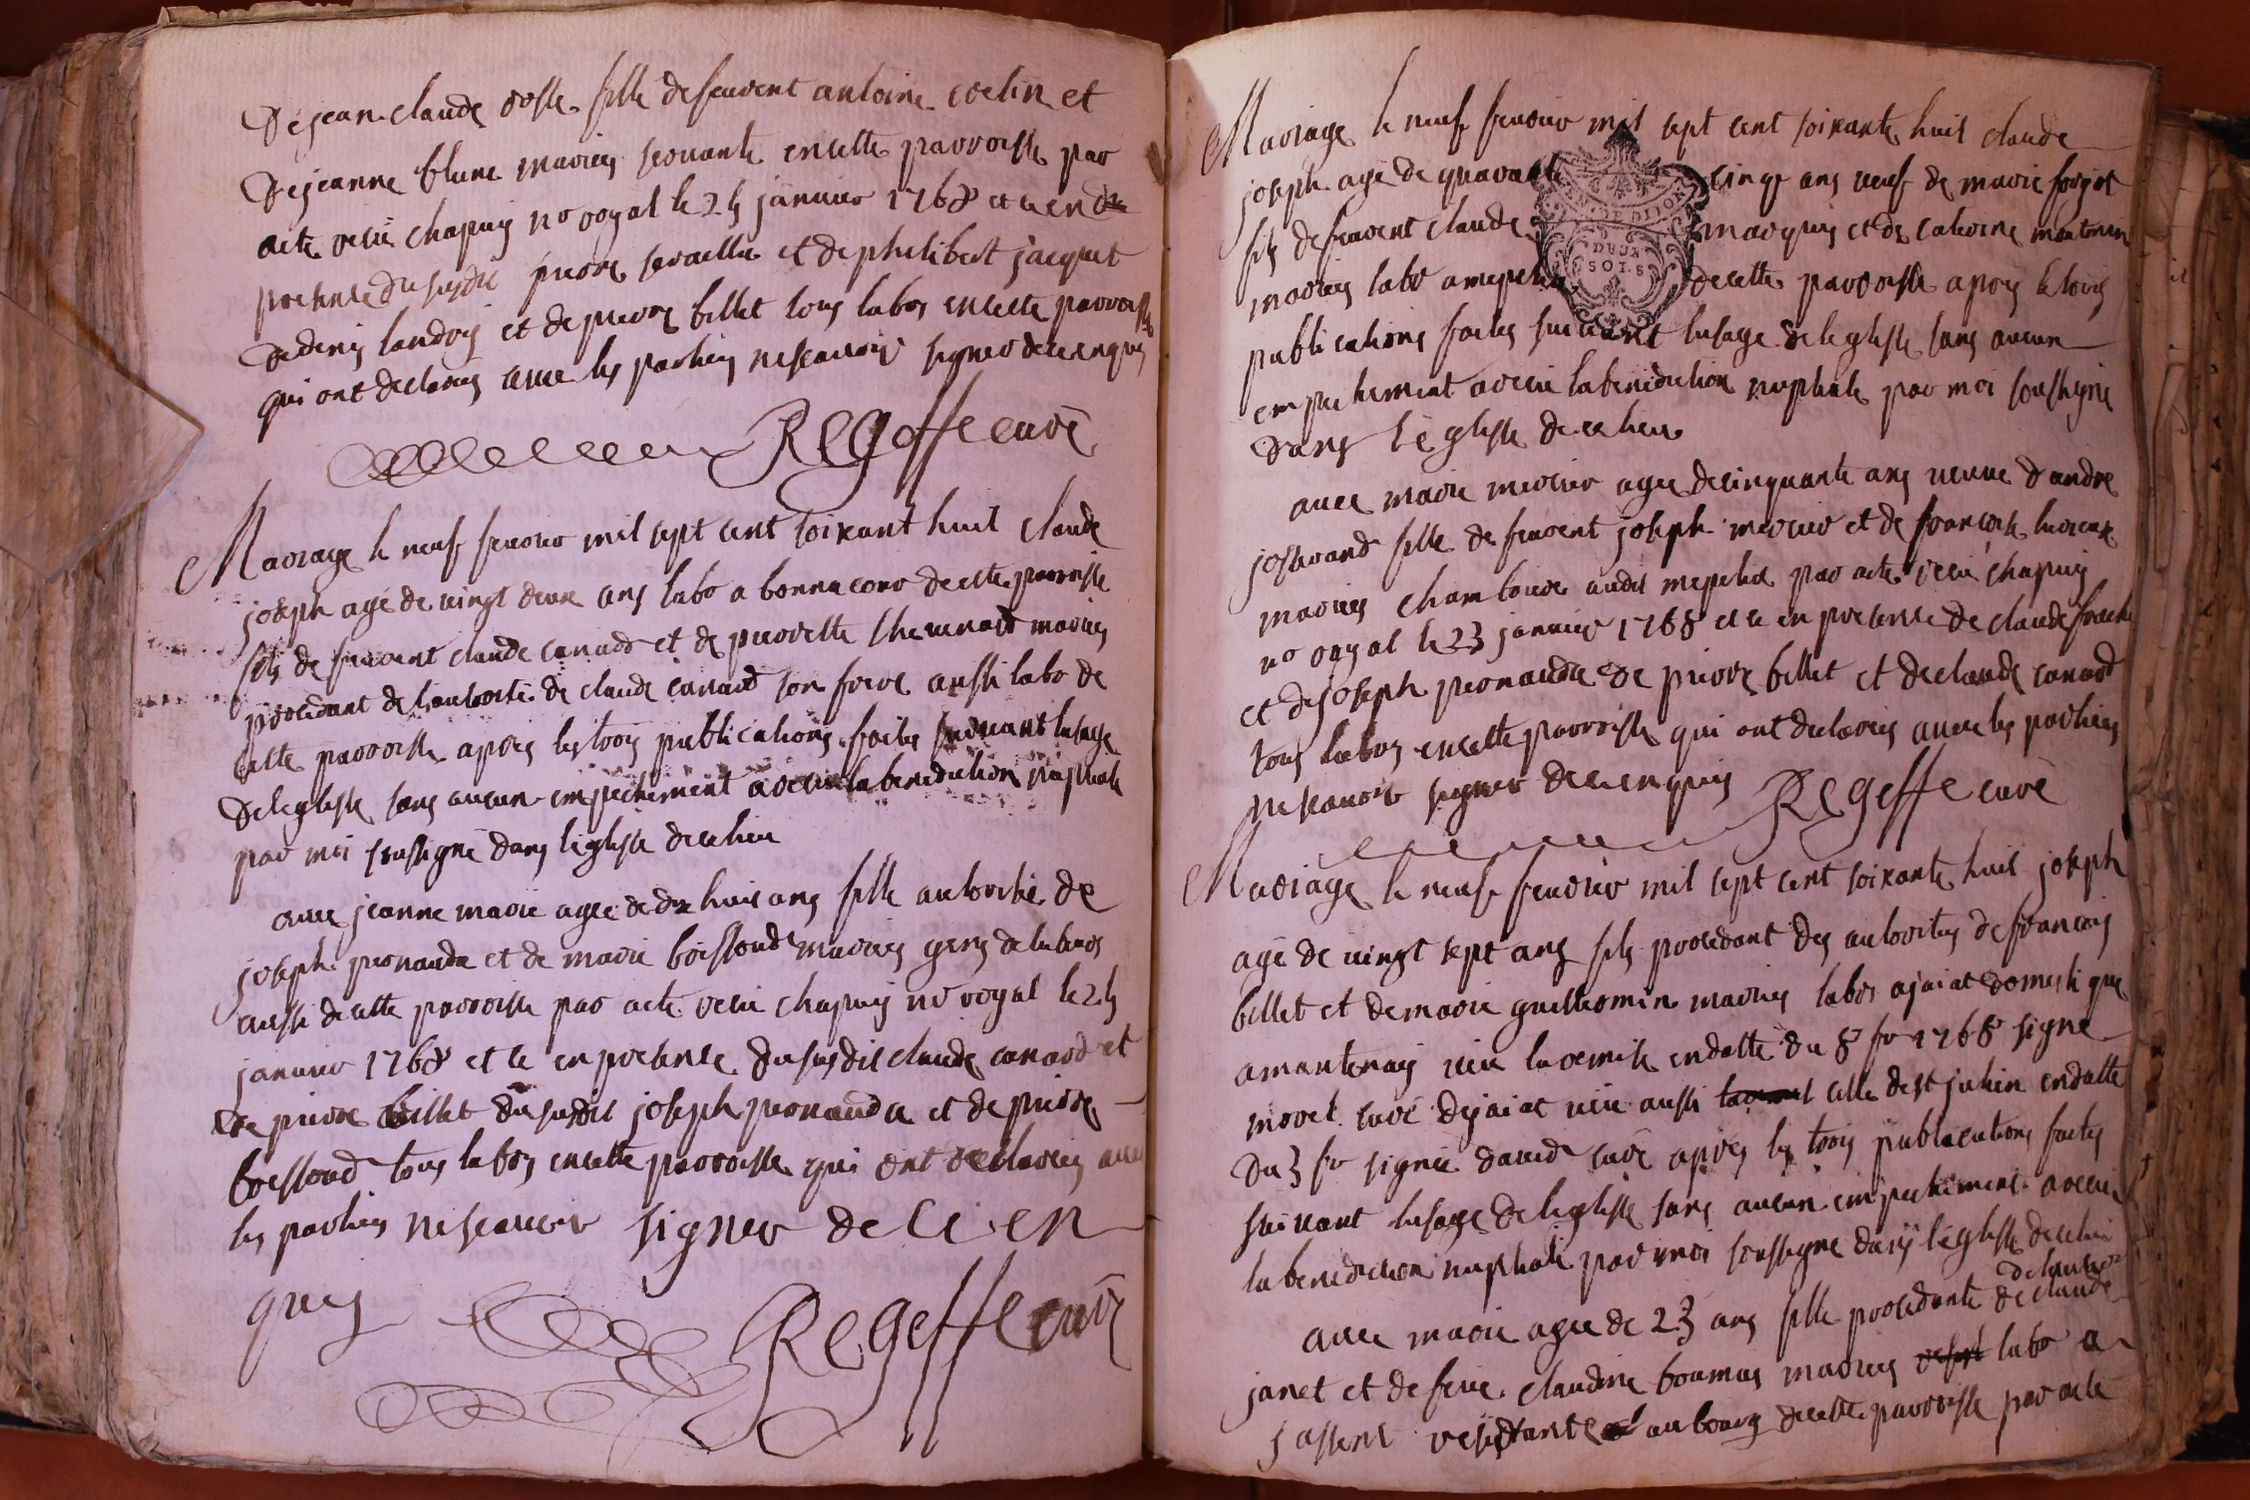 de jean claude fille de feuvent antoine et
de jeanne blanc mariés servante en cette parroisse par
acte receu chapuis nre royal le 24 janvier 1768 et ce en
presence du susdit pierre et de philibert jacquet
de denis landrey et de pierre billet tous labrs en cette parroisse
qui ont declarés avec les parties ne scavoir signer de ce enquis
Regeffe curé
Mariage le neuf fevrier mil sept cent soixant huit claude
joseph agé de vingt deux ans labr a de cette parroisse
fils de feuvent claude canard et de pierrette thevenard mariés
procedant de l'autorité de claude canard son frere aussi labr de
cette parroisse apres les trois publications faites suivant lusage
de leglisse sans aucun empechement a receu la benediction nuptiale
par moi soussigné dans leglisse de ce lieu
avec jeanne marie agée de dix huit ans fille authorisée de
joseph peronaude et de marie boissond mariés gens de labeurs
aussi de cette parroisse par acte receu chapuis nre royal le 24
janvier 1768 et ce en presence du susdit claude canard et
de pierre billet du susdit joseph peronaude et de pierre
boissond tous labrs en cette parroisse qui ont declarés avec
les parties ne scavoir signer de ce en
quis Regeffe curé
Mariage le neuf fevrier mil sept cent soixante huit claude
joseph agé de quarante cinq ans veuf de marie forgot
fils de feuvent claude marquis et de catherine
mariés labr a de cette parroisse apres les trois
publications faites suivant lusage de leglisse sans aucun
empechement a receu la benediction nuptiale par moi soussigné
dans l'eglisse de ce lieu
avec marie mercier agée de cinquante ans veuve d'andre
josserand fille de feuvent joseph mercier et de francoise
mariés audit par acte receu chapuis
nre royal le 23 janvier 1768 et ce en presence de claude
et de joseph peronaude de pierre billet et de claude canard
tous labrs en cette parroisse qui ont declarés avec les parties
ne scavoir signer de ce enquis Regeffe curé
Mariage le neuf fevrier mil sept cent soixante huit joseph
agé de vingt sept ans fils procedant des autorités de francois
billet et de marie guilliomin mariés labrs a jaiat domestique
a mantenay veu la remise en datte du 8 fr 1768 signé
morel curé de jaiat veu aussi celle de st julien en datte
du 3 fr signée david curé apres les trois publications faites
suivant lusage de leglisse sans aucun empechement a receu
la benediction nuptiale par moi soussigné dans l'eglisse de ce lieu
avec marie agée de 23 ans fille procedante de claude
janet et de feue claudine mariés labr a
jassens residante au bourg de cette parroisse par acte